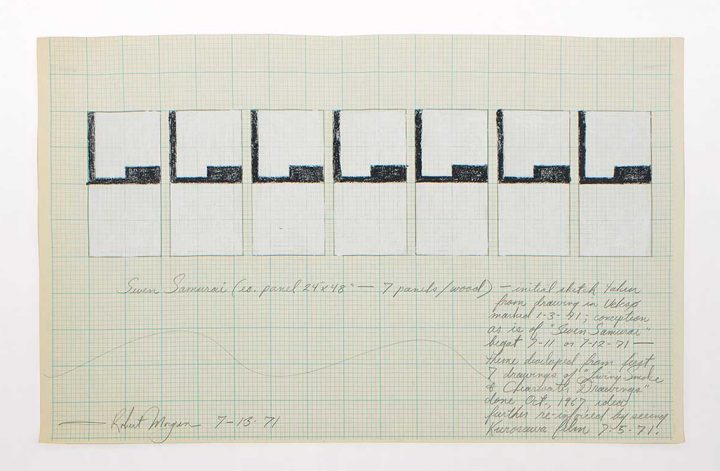 Seven Samurai (ea. panel 24"x48" — 7 panels/wood) — initial sketch taken
from drawing in
marked 1-3-71; conception
as is of "Seven Samurai"
begat 7-11 or 7-12-71 —
theme developed from first
7 drawings of "Living Smoke
& Clearwater Drawings"
done Oct., 1967 idea
further re-inspired by seeing
Kurosawa film 7-5-71.
— Robert Morgan 7-13-71